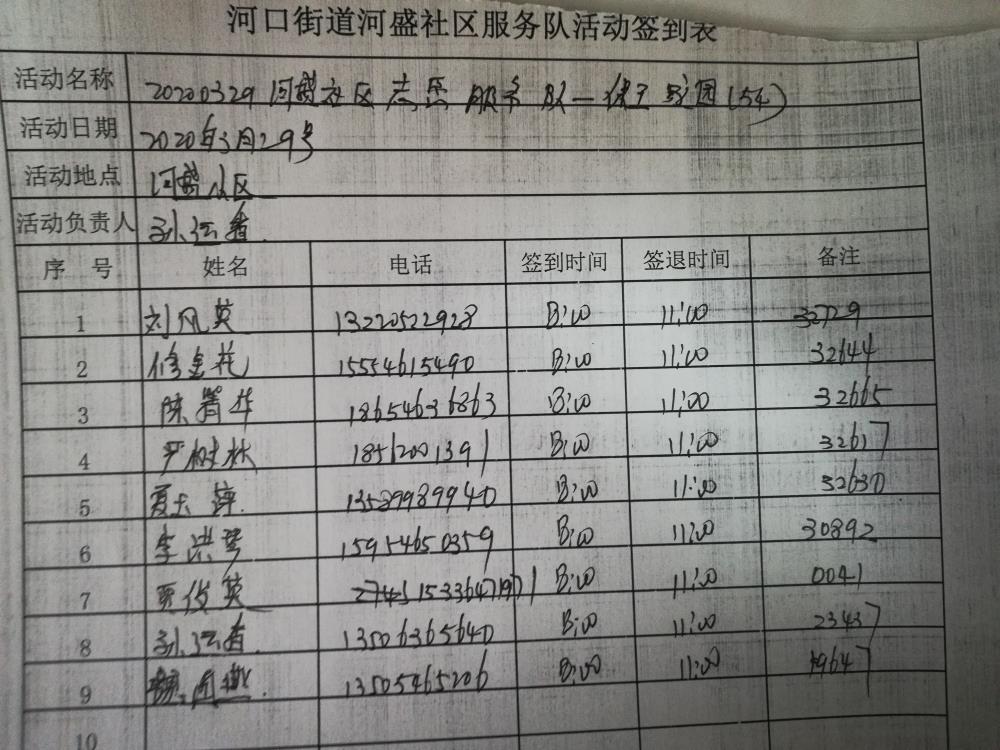 河口街道河盛社区服务队活动签到表
活动名称 20200329河盛社区志愿服务队一健王家园(54)
活动日期 2020年3月29号
活动地点 河盛小区
活动负责人 孙江香
序 号 姓名 电话 签到时间 签退时间 备注
1 刘风英 13220522928 8:00 11:00 32729
2 修金花 15554615490 8:00 11:00 32644
3 陈菁华 18654636863 8:00 11:00 32665
4 严树林 18562001391 8:00 11:00 32617
5 夏玉萍 13589989940 8:00 11:00 32630
6 李洪琴 15954650359 8:00 11:00 30892
7 贾俊英 8:00 11:00 0041
8 孙江香 13506365640 8:00 11:00 23437
9 13505465206 8:00 11:00 19647
10